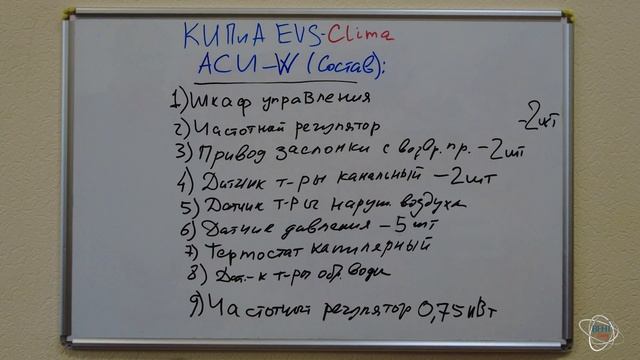 КИПиА EVS-Clima
АСU-W (Состав):
1) Шкаф управления
2) Частотный регулятор -2шт
3) Привод заслонки с возвр. пр. -2шт
4) Датчик т-ры канальный -2шт
5) Датчик т-ры наруж. воздуха
6) Датчик давления -5шт
7) Термостат капилярный
8) Дат-к т-ры обр. воды
9) Частотный регулятор 0,75кВт